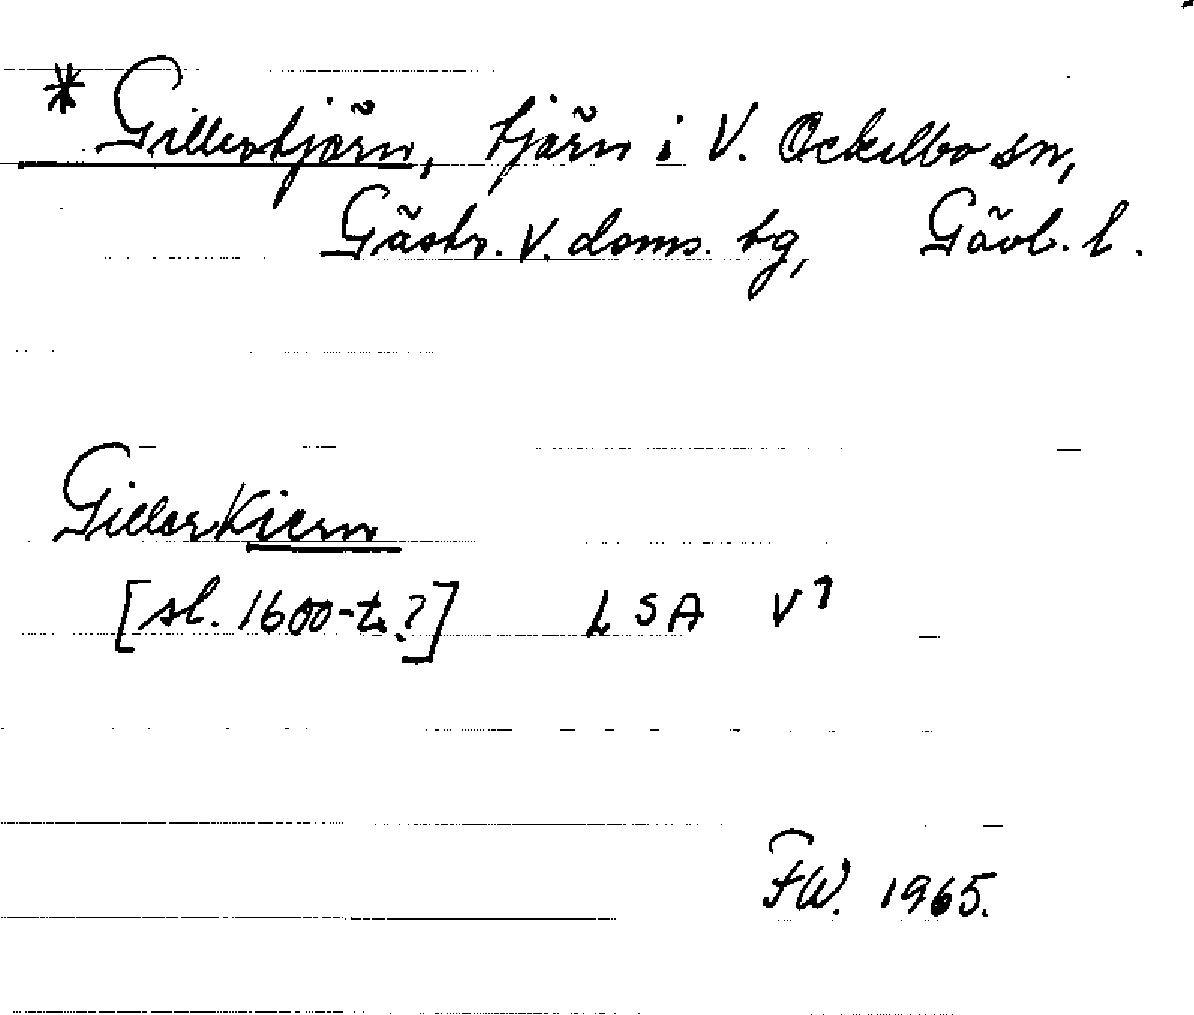 * Gillertjärn, tjärn i V. Ockelbo sn,
Gästr. V. doms. tg, Gävl. l.
Gillerkiern
[sl. 1600-t.?] LSA V1
FW. 1965.